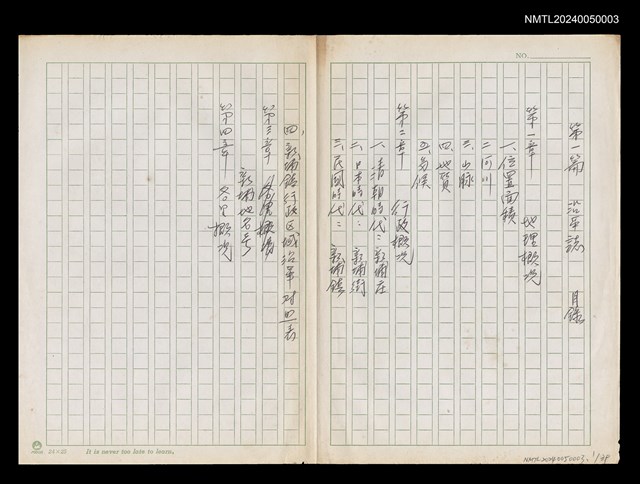 NMTL20240050003
NO.
第一篇 沿革誌 目錄
第一章 地理概況
一、位置面積
二、河川
三、山脈
四、地質
五、氣候
第二章 行政概況
一、清朝時代：新埔庄
二、日本時代：新埔街
三、民國時代：新埔鎮
四、新埔鎮行政区域沿革対照表
第三章
新埔地名考
第四章 各里概況
24×25 It is never too late to learn.
NMTL20240050003. 1/39